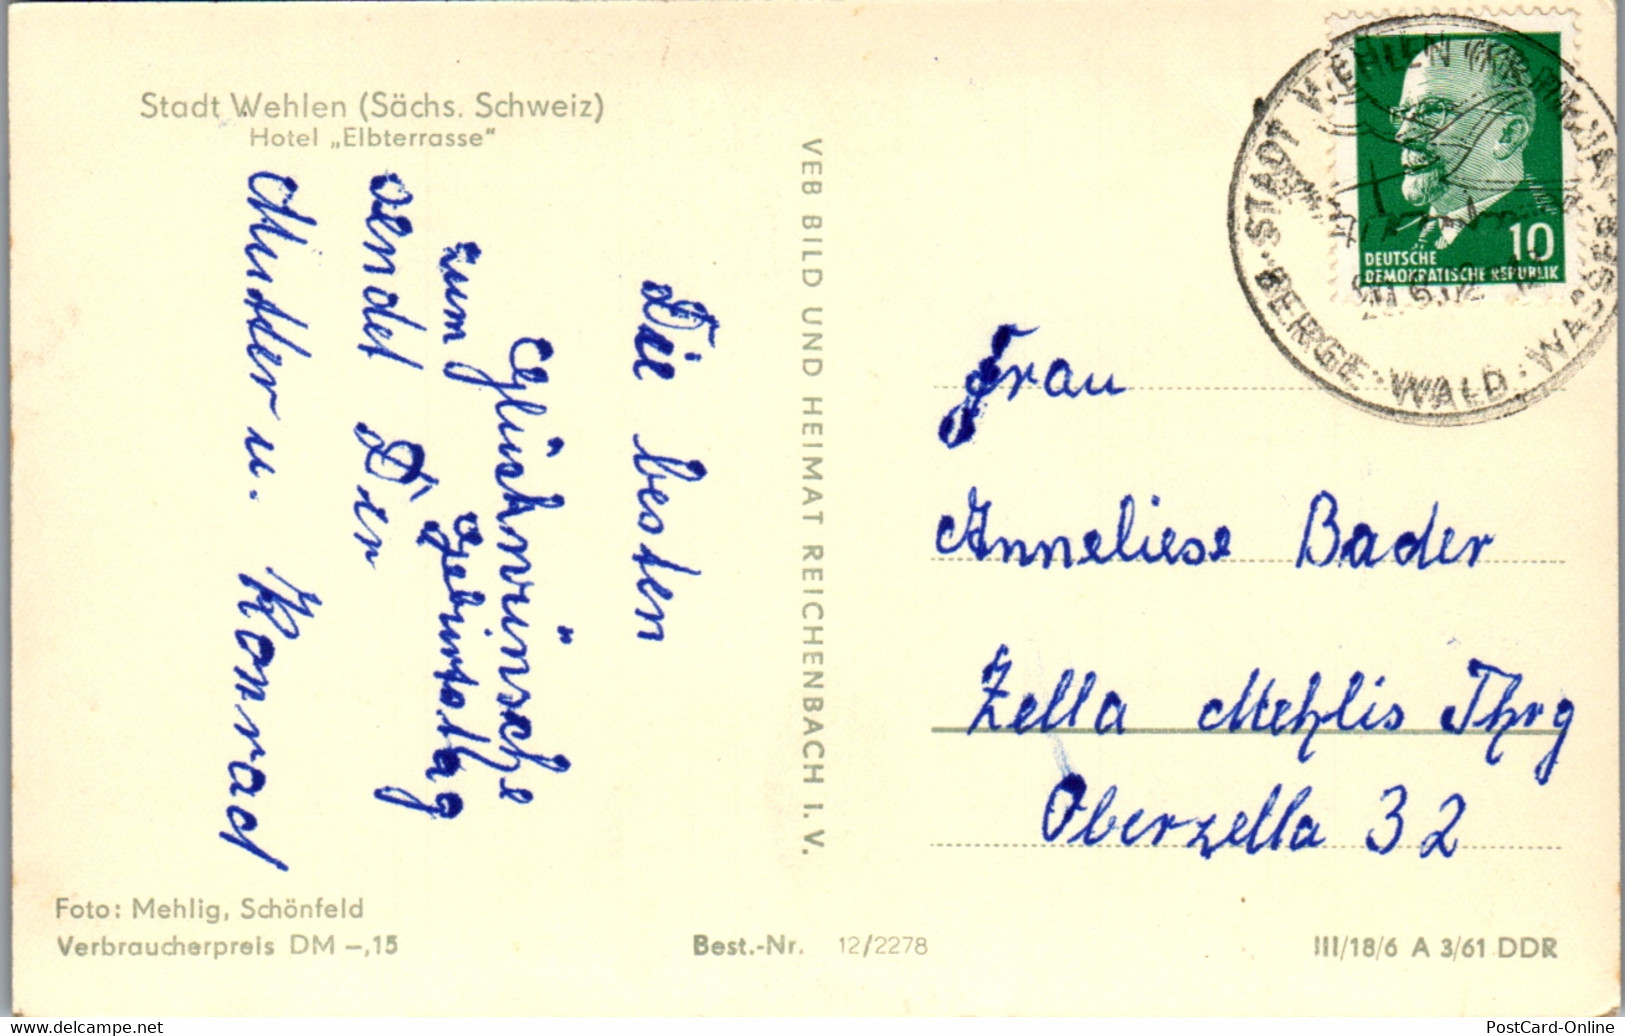 Stadt Wehlen (Sächs. Schweiz)
Hotel „Elbterrasse“
Die besten
Glückwünsche
zum Geburtstag
sendet Dir
Mutter u. Konrad
VEB BILD UND HEIMAT REICHENBACH I. V.
STADT WEHLEN
BERGE · WALD · WASSER
10
DEUTSCHE
DEMOKRATISCHE REPUBLIK
Frau
Anneliese Bader
Zella Mehlis Thrg
Oberzella 32
Foto: Mehlig, Schönfeld
Verbraucherpreis DM –,15
Best.-Nr. 12/2278
III/18/6 A 3/61 DDR
www.delcampe.net
PostCard-Online